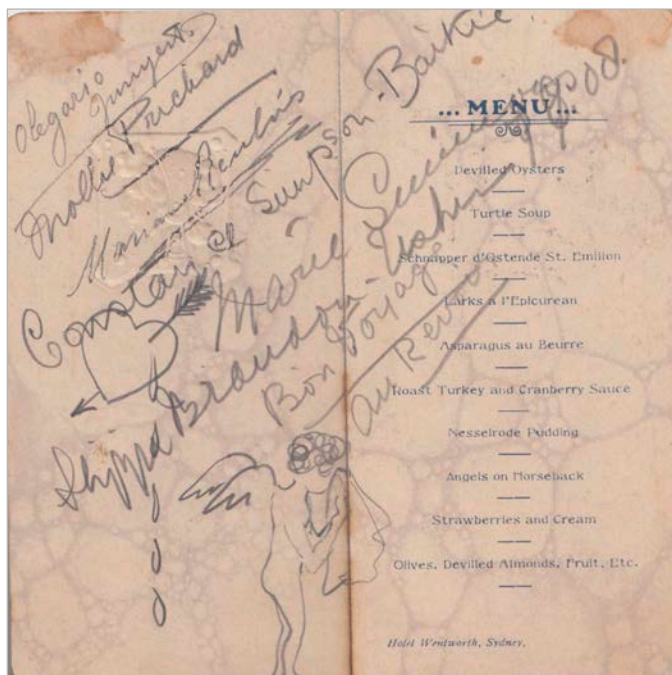 Olegario
Junyent
Mollie Prichard
Constance Simpson-Baikie
Marie
Brandon
Bon Voyage
au Revoir
... MENU ...
Devilled Oysters
Turtle Soup
Schnapper d'Ostende St. Emilion
Larks a l'Epicurean
Asparagus au Beurre
Roast Turkey and Cranberry Sauce
Nesselrode Pudding
Angels on Horseback
Strawberries and Cream
Olives, Devilled Almonds, Fruit, Etc.
Hotel Wentworth, Sydney.